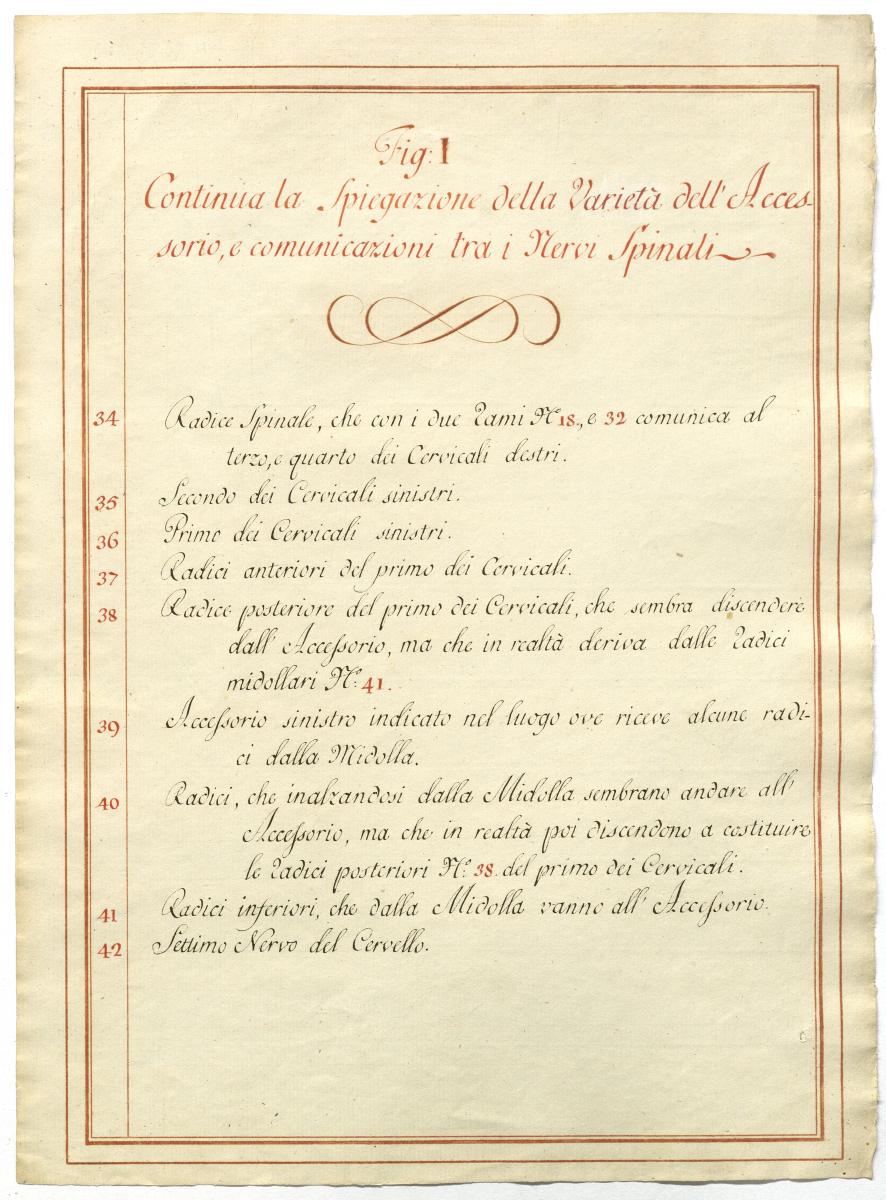 Fig: I
Continua la Spiegazione della Varietà dell' Acces-
sorio, e comunicazioni tra i Nervi Spinali
34 Radice Spinale, che con i due Rami N.º 18., e 32 comunica al
terzo, e quarto dei Cervicali destri.
35 Secondo dei Cervicali sinistri.
36 Primo dei Cervicali sinistri.
37 Radici anteriori del primo dei Cervicali.
38 Radice posteriore del primo dei Cervicali, che sembra discendere
dall' Accessorio, ma che in realtà deriva dalle Radici
midollari N.º 41.
39 Accessorio sinistro indicato nel luogo ove riceve alcune radi-
ci dalla Midolla.
40 Radici, che inalzandosi dalla Midolla sembrano andare all'
Accessorio, ma che in realtà poi discendono a costituire
le Radici posteriori N.º 38. del primo dei Cervicali.
41 Radici inferiori, che dalla Midolla vanno all' Accessorio.
42 Settimo Nervo del Cervello.